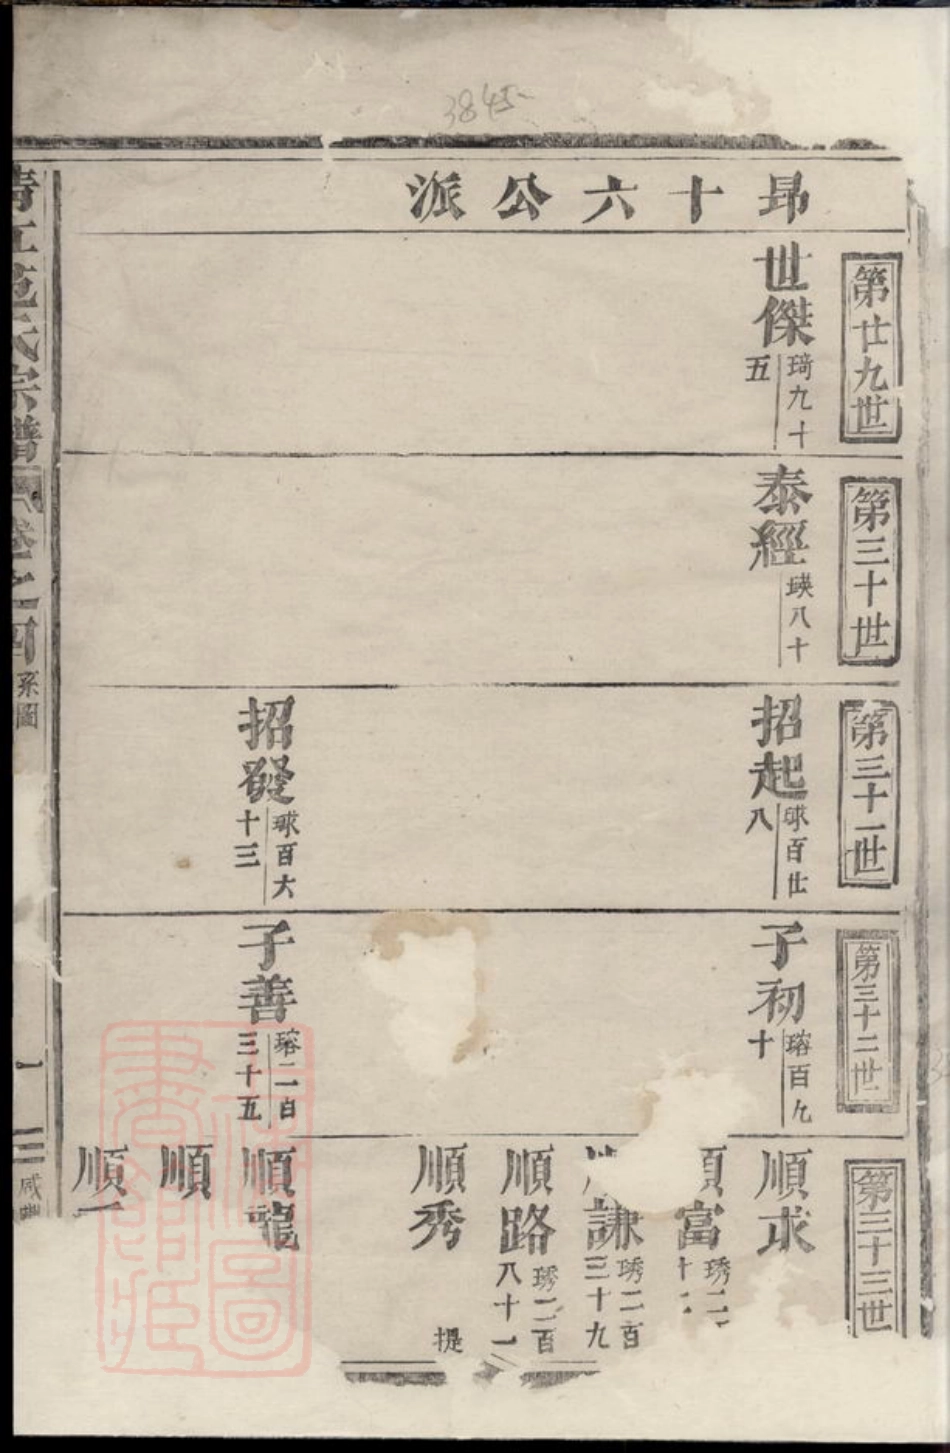 3845-
昂十六公派
第廿九世
世傑
琦九十
五
第三十世
泰經
瑛八十
第三十一世
招起
球百廿
八
招發
球百六
十三
第三十二世
子初
瑢百九
十
子善
瑢二百
三十五
第三十三世
順求
順富
琇二
順謙
琇二百
三十九
順路
琇二百
八十一
順秀
提
順龍
順
順
清江范氏宗譜
卷之四
系圖
一
咸豐